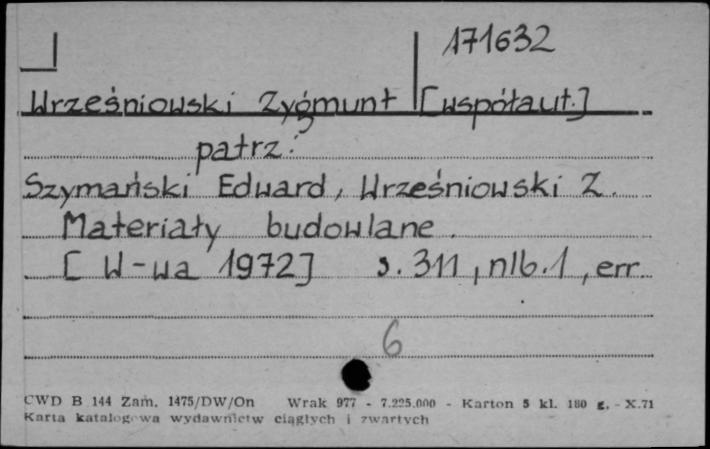 171632
Wrześniowski Zygmunt [współaut.]
patrz:
Szymański Edward, Wrześniowski Z.
Materiały budowlane.
[W-wa 1972] s. 311, nlb. 1, err.
6
CWD B 144 Zam. 1475/DW/On Wrak 977 - 7.225.000 - Karton 5 kl. 180 g. - X.71
Karta katalogowa wydawnictw ciągłych i zwartych